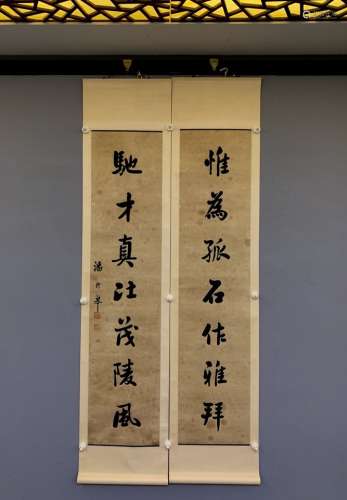 惟為孤石作雅拜
馳才真注茂陵風